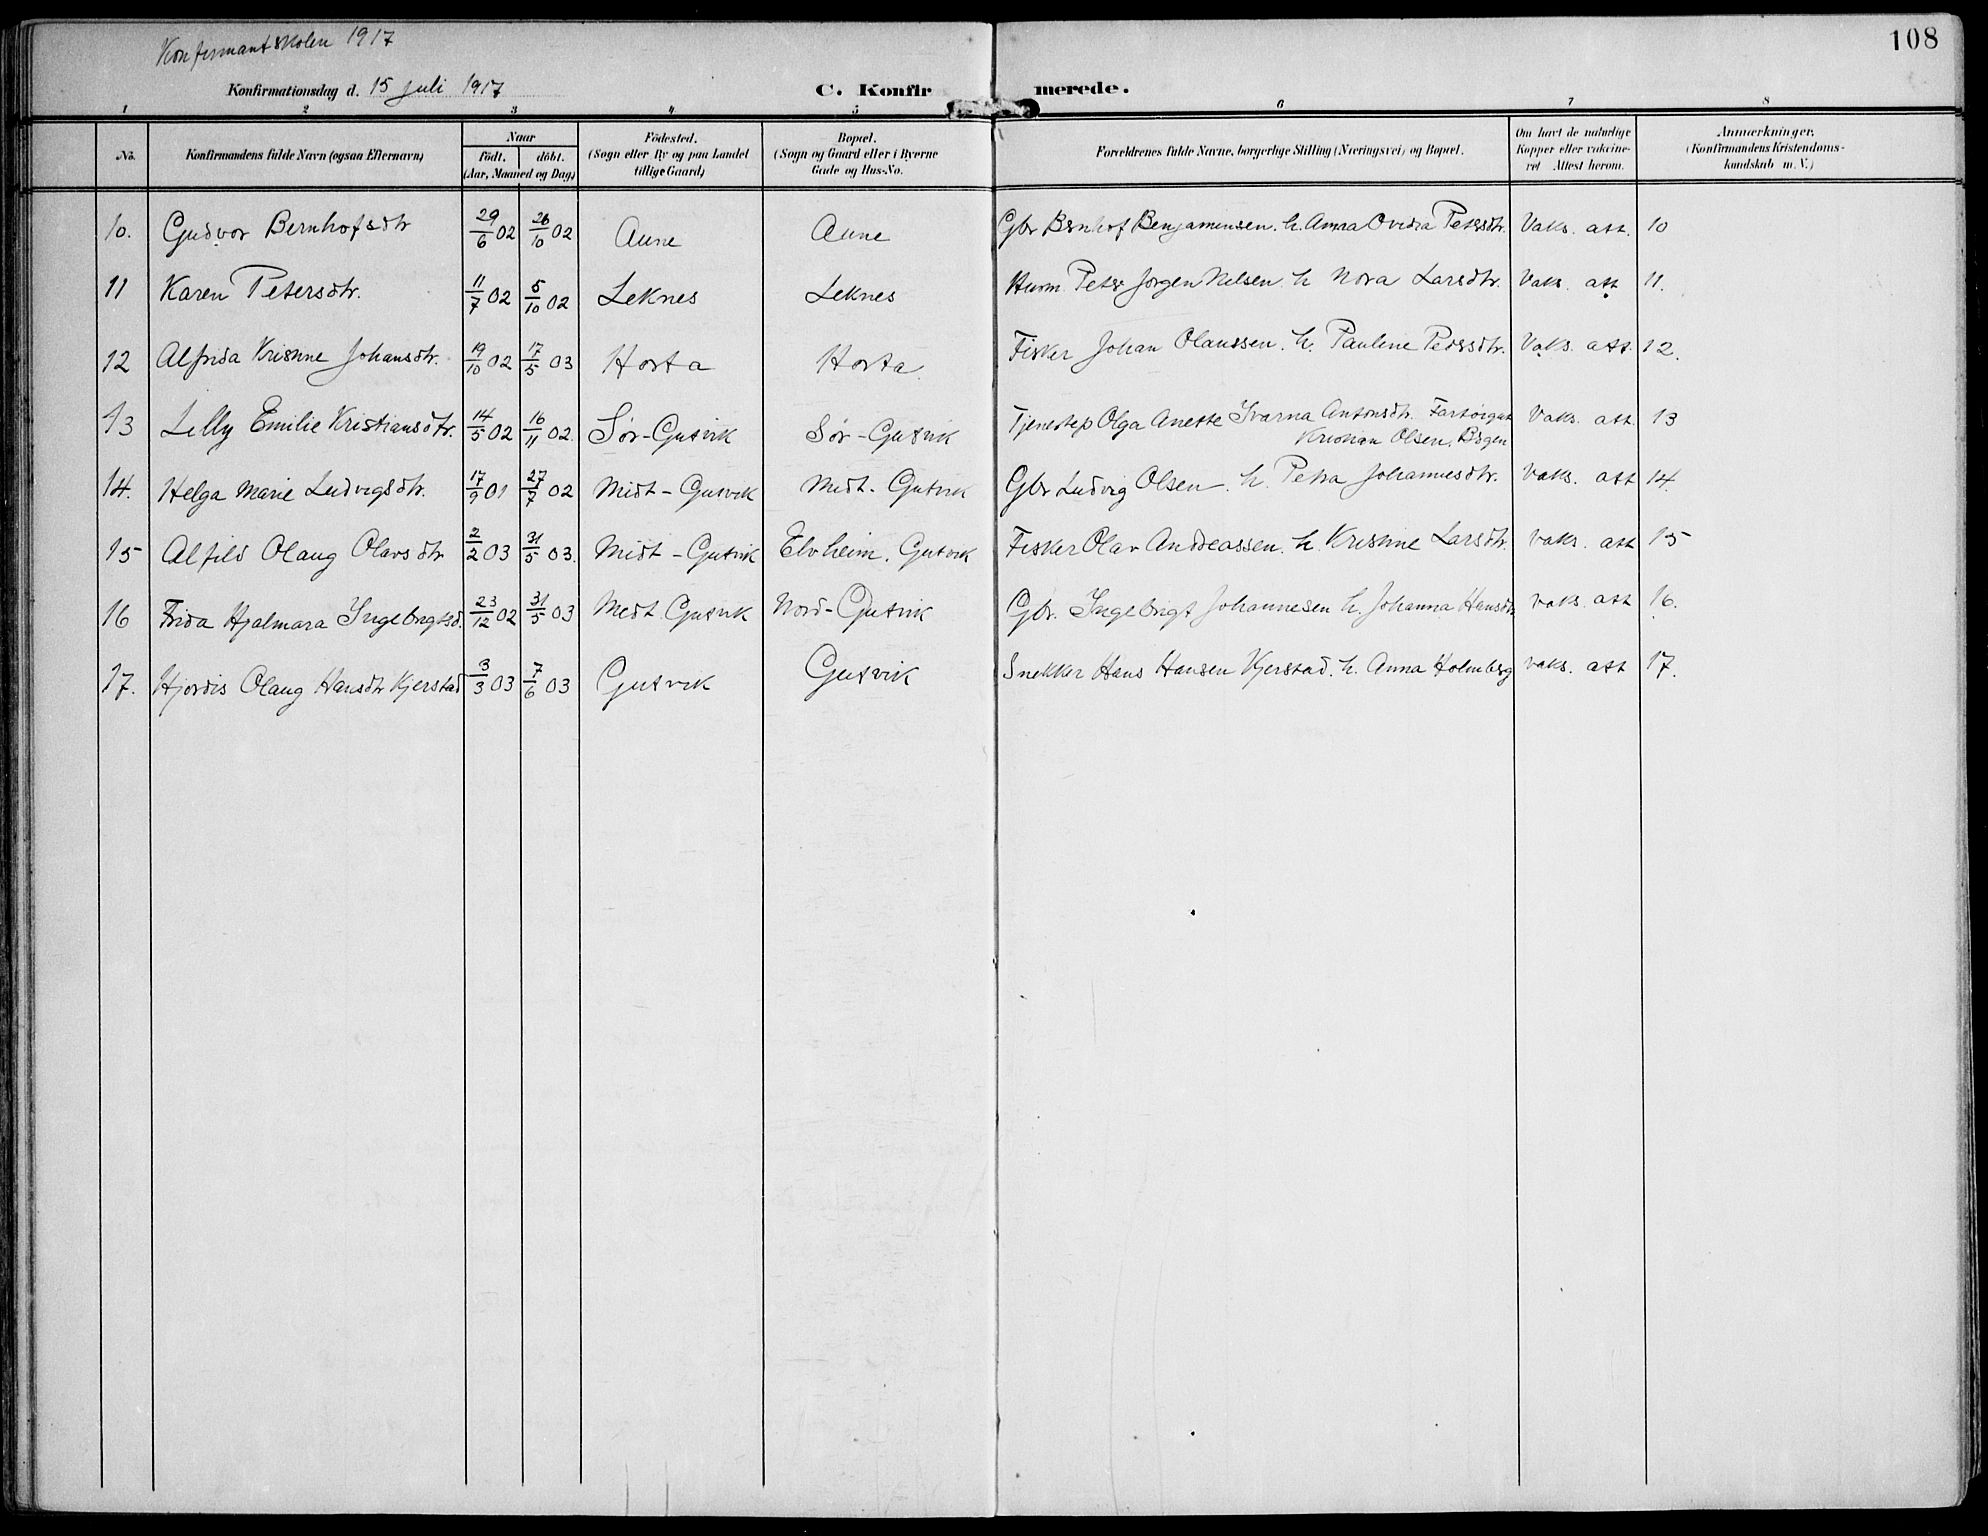 Konfirmantskolen 1917
108
Konfirmationsdag d. 15 juli 1917
C. Konfirmerede.
1 2 3 4 5 6 7 8
No. Konfirmandens fulde Navn (ogsaa Efternavn) Naar födt. döbt. (Aar, Maaned og Dag) Födested. (Sogn eller By og paa Landet tillige Gaard) Bopæl. (Sogn og Gaard eller i Byerne Gade og Hus-No. Forældrenes fulde Navne, borgerlige Stilling (Næringsvei) og Bopæl. Om havt de naturlige Kopper eller vaccineret Attest herom. Anmærkninger. (Konfirmandens Kristendomskundskab m. V.)
10. Gudvor Bernhofsdtr 29/6 02 26/10 02 Aune Aune Gbr Bernhof Benjamensen. h. Anna Ovidia Petersdtr. Vaks. att. 10
11 Karen Petersdtr. 11/7 02 5/10 02 Leknes Leknes Husm. Peter Jørgen Nilsen h Nora Larsdtr. Vaks. att 11.
12 Alfrida Kristine Johansdtr. 19/10 02 17/5 03 Horta Horta. Fisker Johan Olaussen. h. Pauline Pedersdtr. Vaks. att. 12.
13 Lilly Emilie Kristiansdtr. 14/5 02 16/11 02. Sør-Gutvik Sør-Gutvik Tjenestep Olga Anette Ivarna Antonsdtr. Farsørgut
Kristian Olsen, Bergen Vaks. att 13
14. Helga Marie Ludvigsdtr. 17/9 01 27/7 02 Midt-Gutvik Midt-Gutvik Gbr Ludvig Olsen. h. Petra Johannesdtr. Vaks. att 14.
15 Alfild Olaug Olavsdtr 2/2 03 31/5 03. Midt-Gutvik Elvheim, Gutvik Fisker Olav Andreassen. h. Kristine Larsdtr. vaks. att 15
16 Frida Hjalmara Ingebrigtsd. 23/12 02 31/5 03 Midt Gutvik Nord-Gutvik Gbr. Ingebrigt Johannesen h. Johanna Hansdtr vaks. att 16.
17. Hjordis Olaug Hansdtr Kjerstad 3/3 03 7/6 03 Gutvik Gutvik Snekker Hans Hansen Kjerstad. h. Anna Holmberg vaks. att 17.